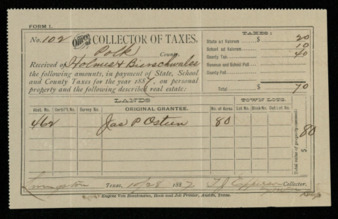 FORM 1.
No. 102 COLLECTOR OF TAXES,
Polk County
Received of Holmes & Bierschwale
the following amounts, in payment of State, School
and County Taxes for the year 1887, on personal
property and the following described real estate:
TAXES:
State ad Valorem 20
School ad Valorem 10
County Tax 40
Revenue and School Poll
County Poll
Total 70
LANDS
TOWN LOTS
Abst. No. Certif't No. Survey No. ORIGINAL GRANTEE. No. of Acres
462 Jas P Osteen 80
Total value of property 80
Livingston Texas, 10/28 1887 Collector.